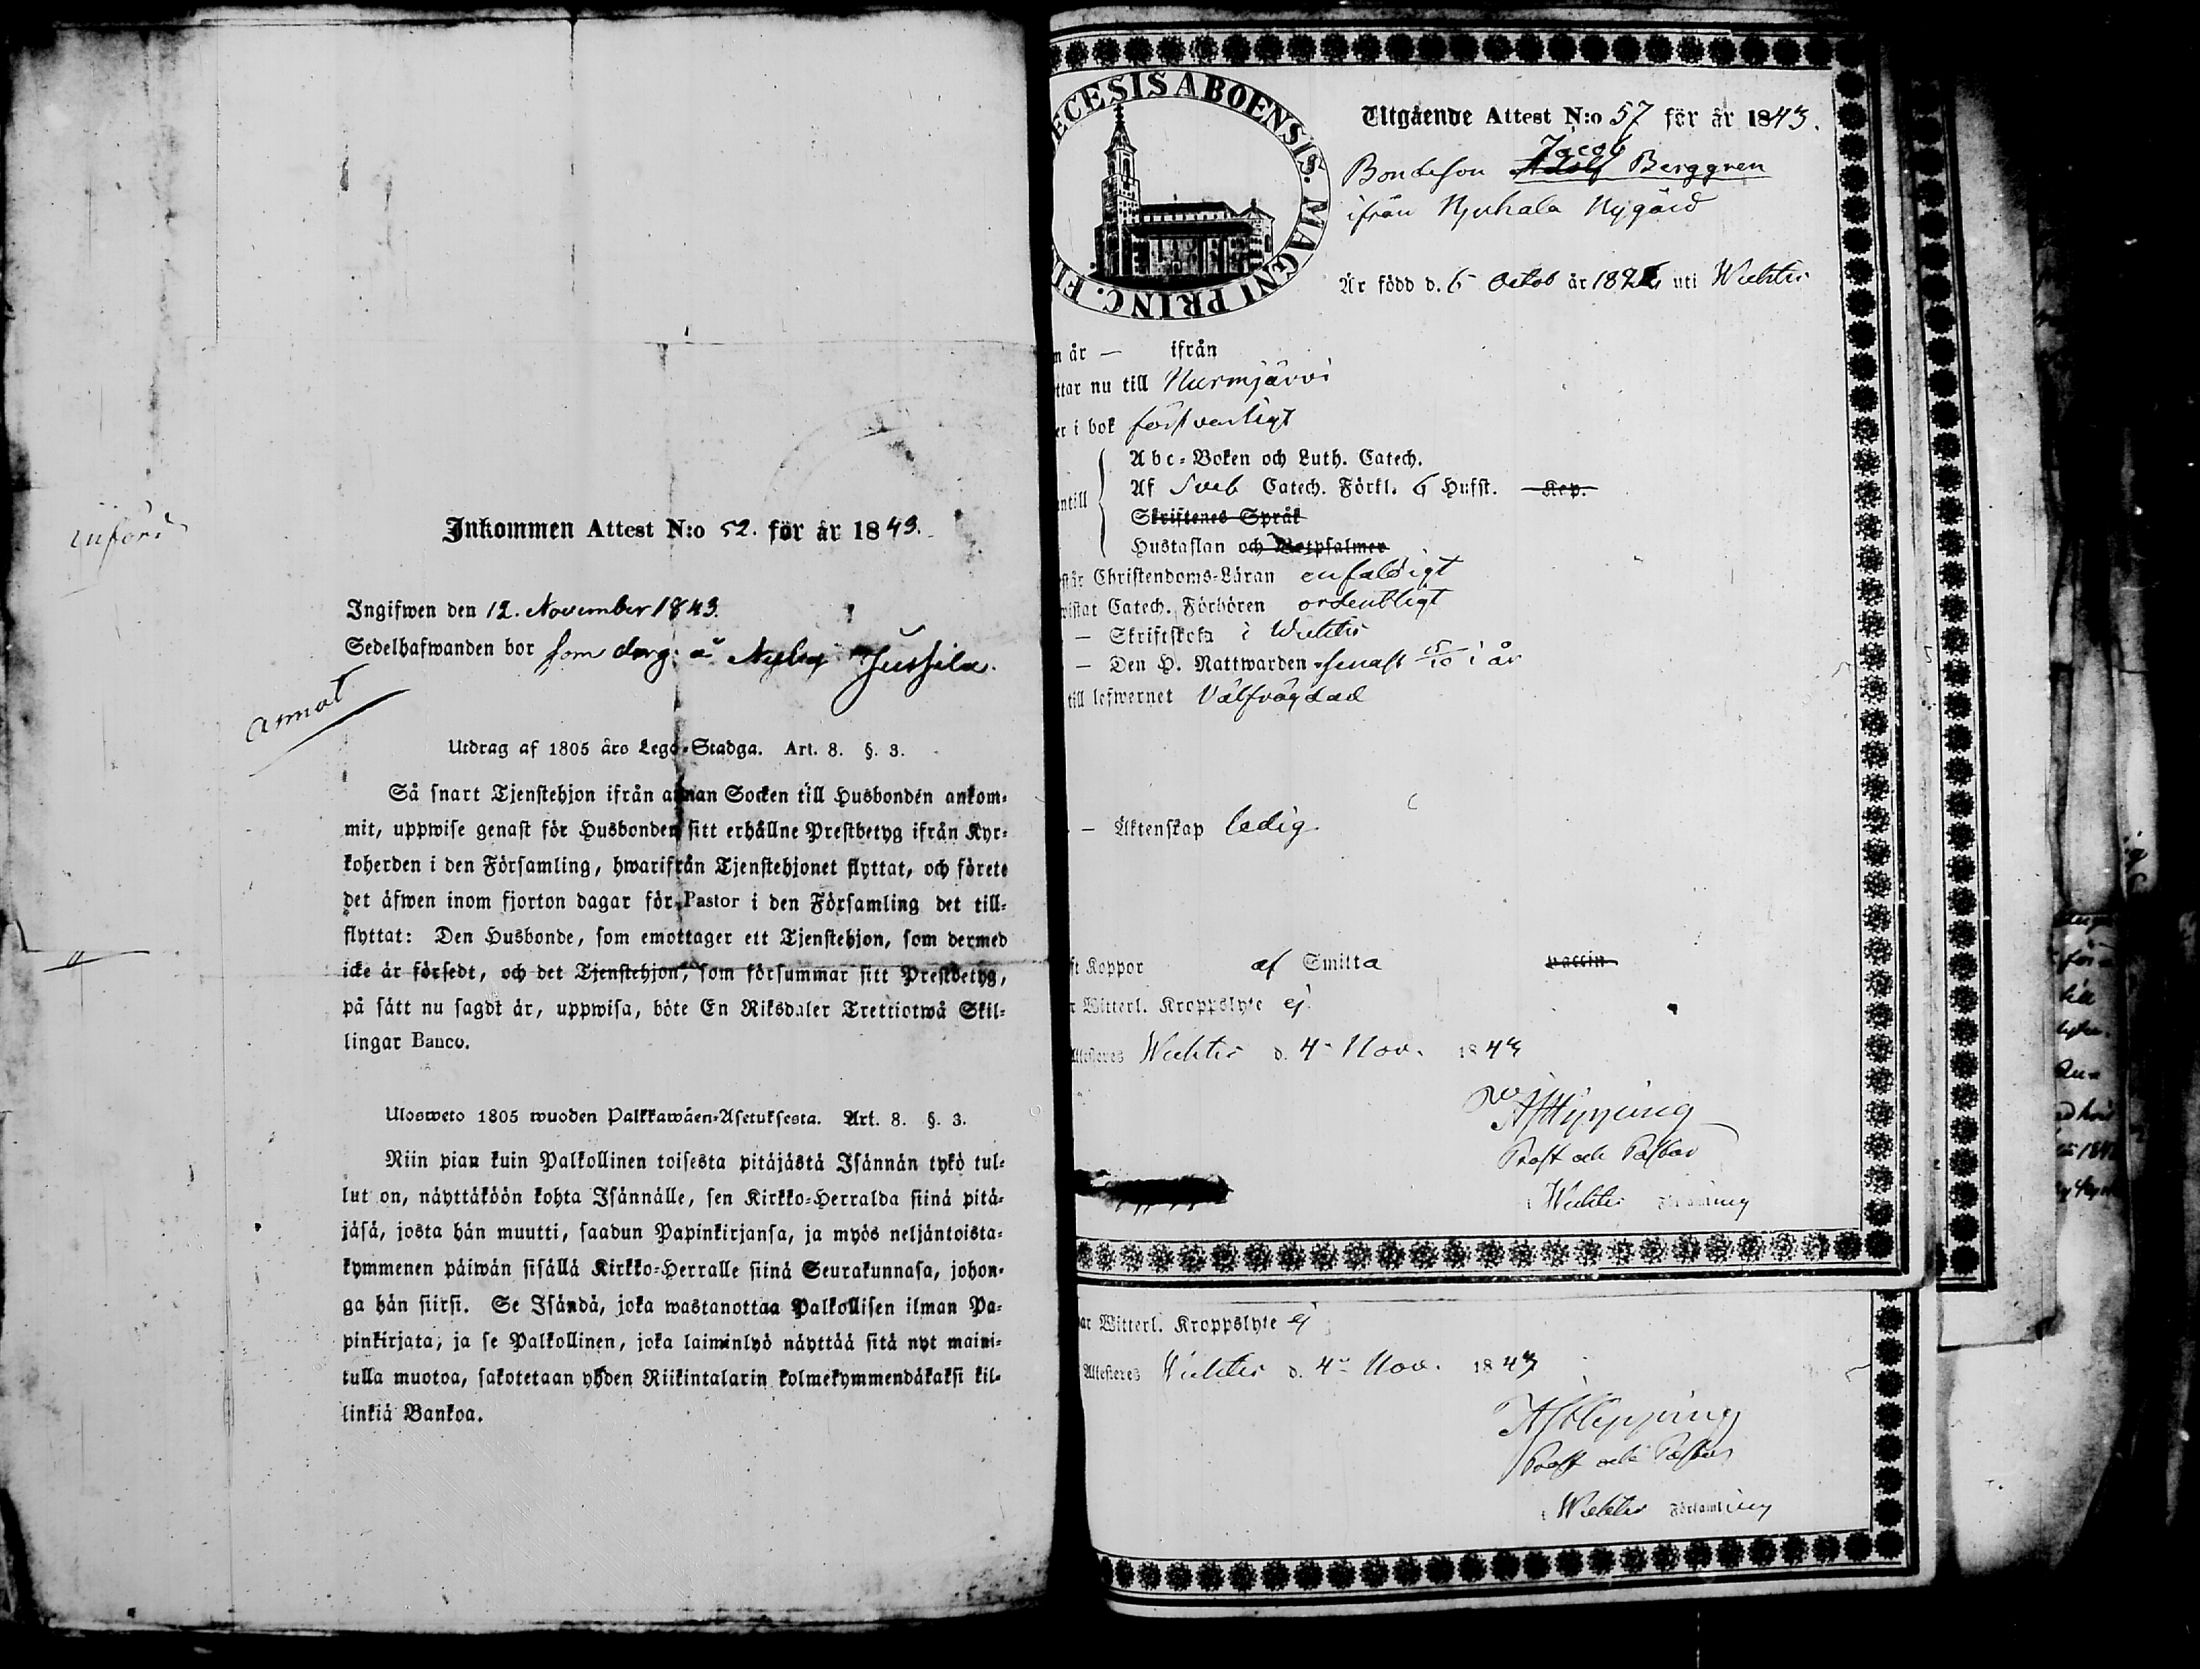 införd
Inkommen Attest N:o 52. för år 1843.
Ingifwen den 12. November 1843.
Sedelhafwanden bor som dräg. å Nyby Jussila.
annot
Utdrag af 1805 års Lego-Stadga. Art. 8. §. 3.
Så snart Tjenstehjon ifrån annan Socken till Husbonden ankom-
mit, uppwise genast för Husbonden sitt erhållne Prestbetyg ifrån Kyr-
koherden i den Församling, hwarifrån Tjenstehjonet flyttat, och förete
det äfwen inom fjorton dagar för Pastor i den Församling det till-
flyttat: Den Husbonde, som emottager ett Tjenstehjon, som dermed
icke är försedt, och det Tjenstehjon, som försummar sitt Prestbetyg,
på sätt nu sagdt är, uppwisa, böte En Riksdaler Trettiotwå Skil-
lingar Banco.
Ulosweto 1805 wuoden Palkkawäen-Asetuksesta. Art. 8. §. 3.
Niin pian kuin Palkollinen toisesta pitäjästä Isännän tykö tul-
lut on, näyttäköön kohta Isännälle, sen Kirkko-Herralda siinä pitä-
jäsä, josta hän muutti, saadun Papinkirjansa, ja myös neljäntoista-
kymmenen päiwän sisällä Kirkko-Herralle siinä Seurakunnasa, johon-
ga hän siirsi. Se Isändä, joka wastanottaa Palkollisen ilman Pa-
pinkirjata, ja se Palkollinen, joka laiminlyö näyttää sitä nyt maini-
tulla muotoa, sakotetaan yhden Riikintalarin kolmekymmendäkaksi kil-
linkiä Bankoa.
ECESIS ABOENSIS. MAGNI PRINC. FI
Utgående Attest N:o 57 för år 1843.
Jacob
Bondeson Adolf Berggren
ifrån Hjuhala Nygård
Är född d. 6 Octob år 1826 uti Wichtis
n år — ifrån
ttar nu till Nurmijärvi
er i bok försvarligt
Abc-Boken och Luth. Catech.
Af Sveb Catech. Förkl. 6 Hufst. Rep.
ntill
Skriftenes Språk
Hustaflan och Botpsalmer
står Christendoms-Läran enfaldigt
vistat Catech. Förhören ordentligt
— Skriftskola i Wichtis
— Den H. Nattwarden senast 15/10 i år
till lefwernet Välfrägdad
— Äktenskap ledig
ft Koppor af Smitta vaccin
r Witterl. Kroppslyte ej.
Attesteres Wichtis d. 4 Nov. 1843
AFHipping
Prost och Pastor
i Wichtis Församling
ar Witterl. Kroppslyte ej
Attesteres Wichtis d. 4 Nov. 1843
AFHipping
Prost och Pastor
i Wichtis Församling